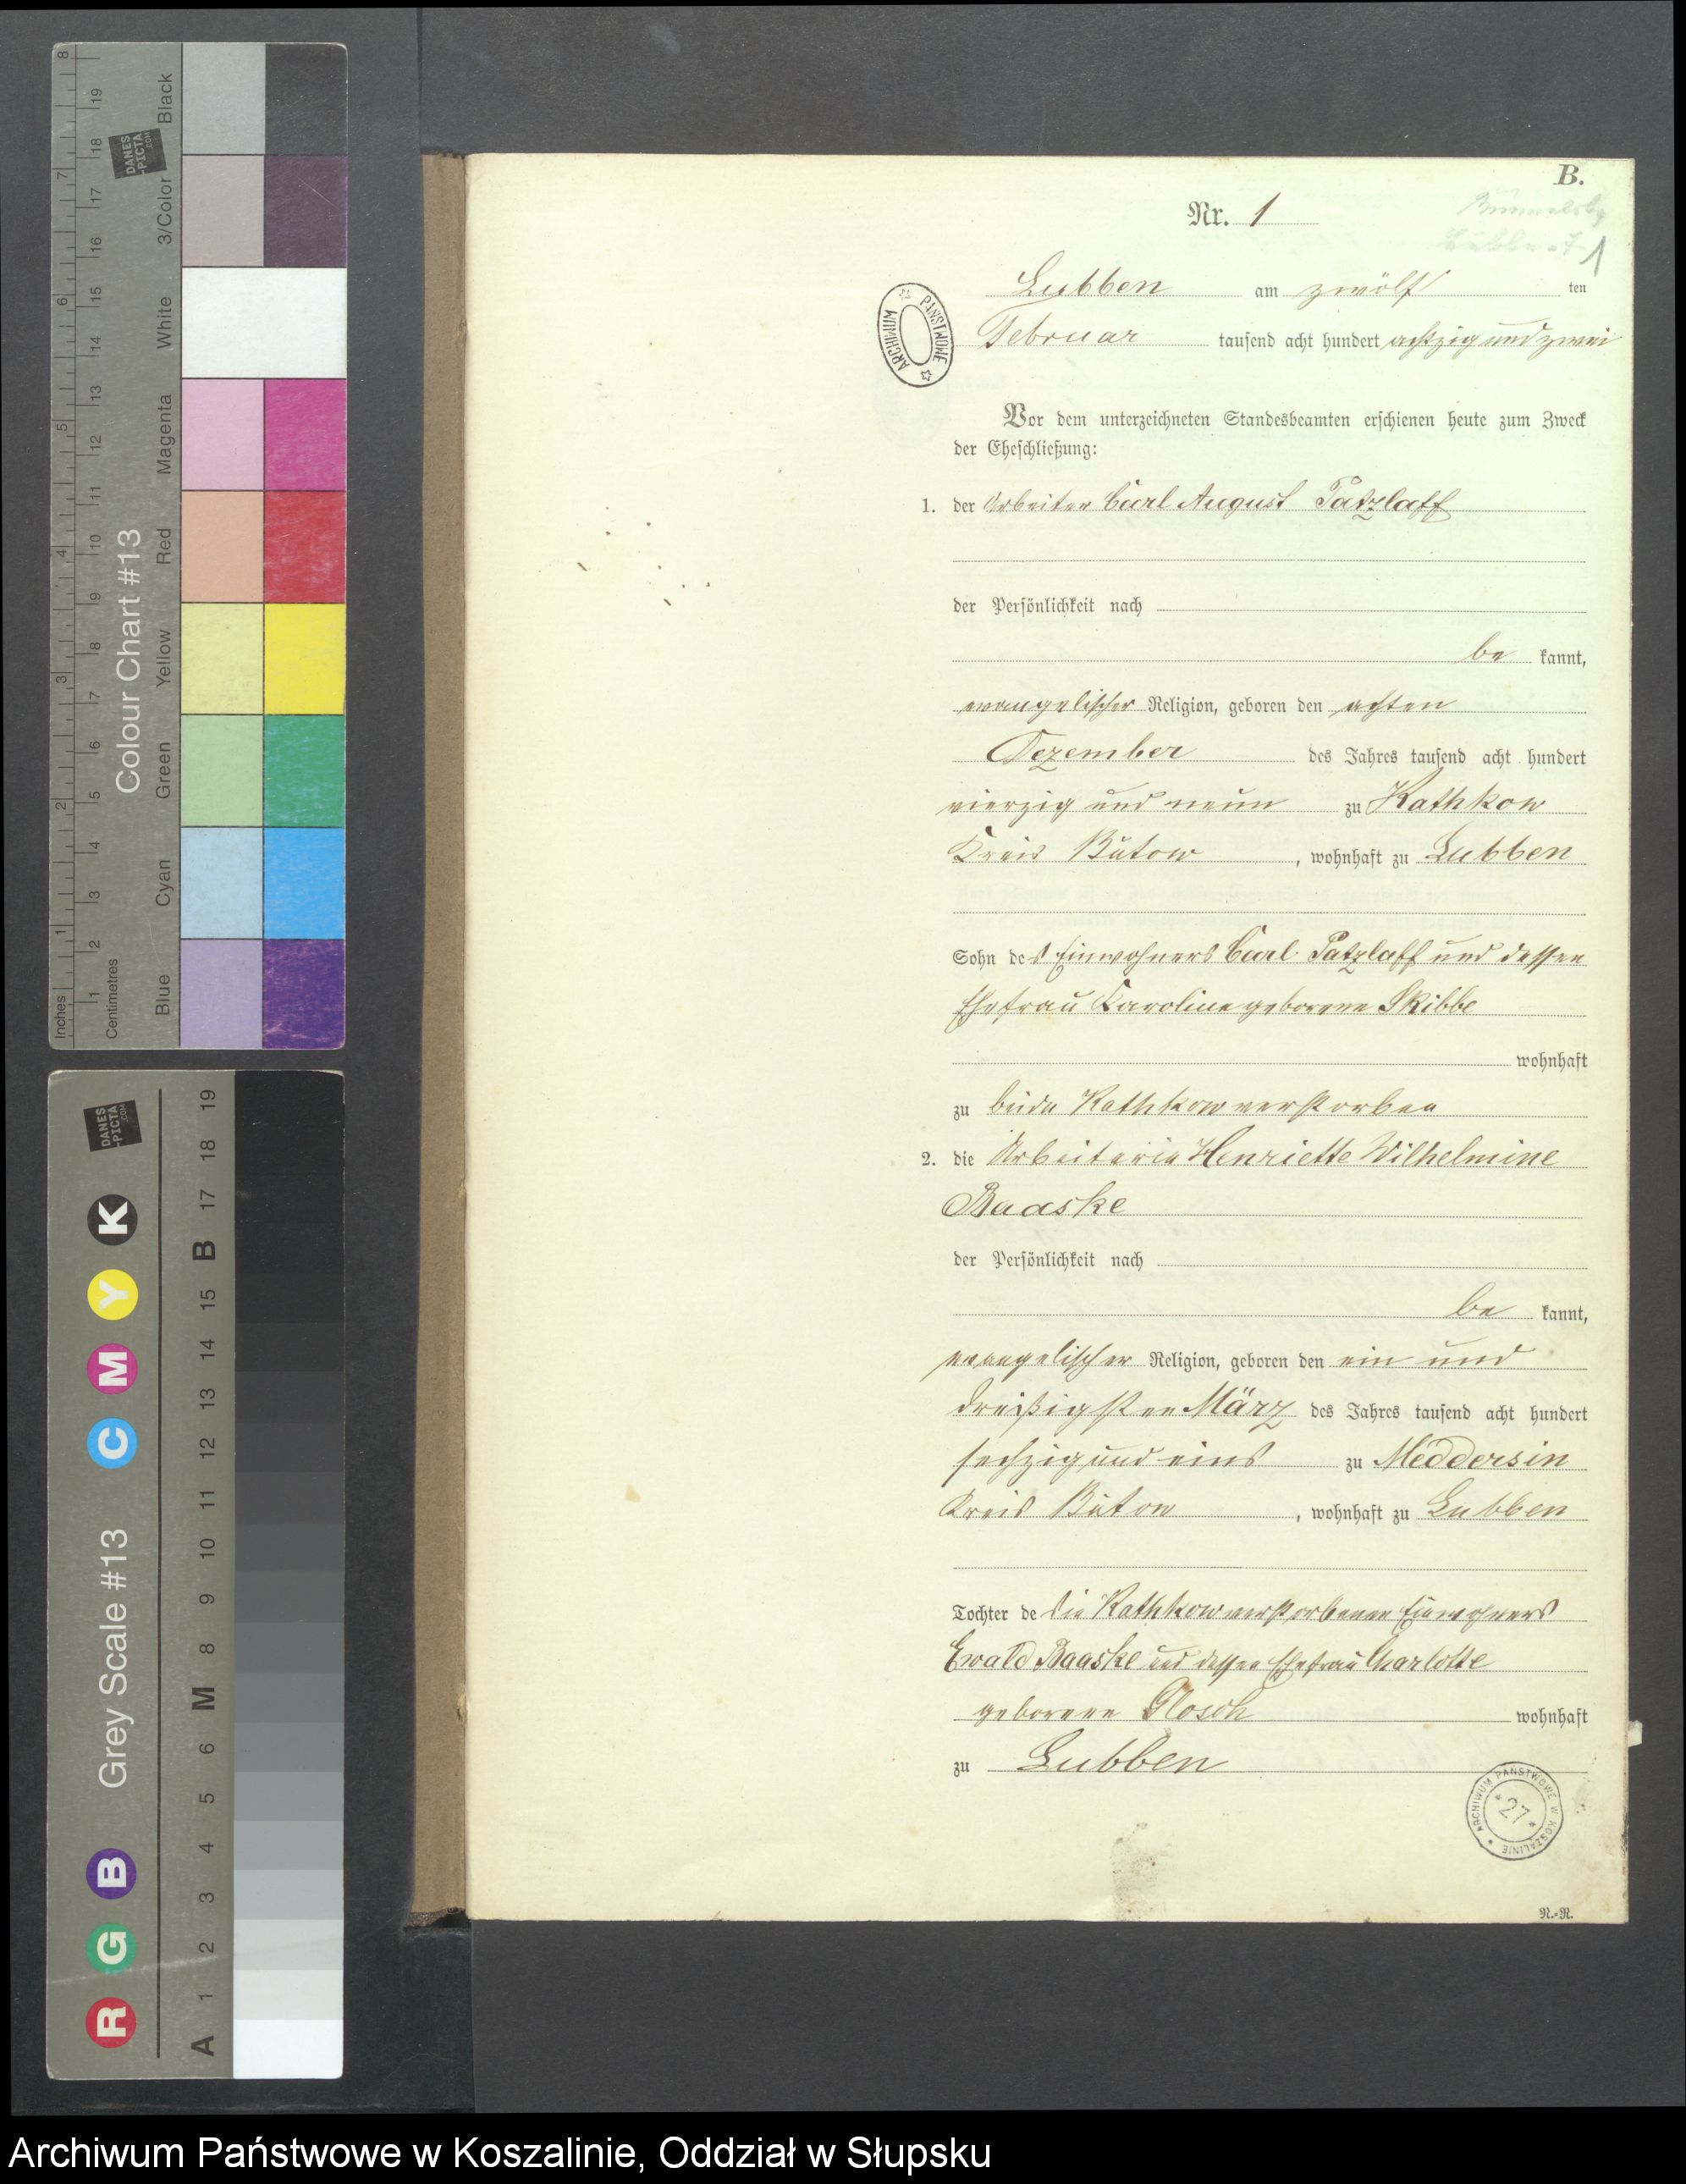 B.
Nr. 1
1
Lubben am zwölf ten
Februar tausend acht hundert achtzig und zwei
ARCHIWUM PAŃSTWOWE
Vor dem unterzeichneten Standesbeamten erschienen heute zum Zweck
der Eheschließung:
1. der Arbeiter Carl August Patzlaff
der Persönlichkeit nach
be kannt,
evangelischer Religion, geboren den achten
Dezember des Jahres tausend acht hundert
vierzig und neun zu Kathkow
Kreis Bütow, wohnhaft zu Lubben
Sohn des Einwohners Carl Patzlaff und dessen
Ehefrau Karoline geborene Skibbe
wohnhaft
zu beide Kathkow verstorben
2. die Arbeiterin Henriette Wilhelmine
Baaske
der Persönlichkeit nach
be kannt,
evangelischer Religion, geboren den ein und
dreißigsten März des Jahres tausend acht hundert
sechzig und eins zu Meddersin
Kreis Bütow, wohnhaft zu Lubben
Tochter de Kathkow verstorbenen Einwohners
Ewald Baaske und dessen Ehefrau Charlotte
geborene Glosch wohnhaft
zu Lubben
ARCHIWUM PAŃSTWOWE W KOSZALINIE
27
N.-N.
Inches 1 2 3 4 5 6 7 8
Centimetres 1 2 3 4 5 6 7 8 9 10 11 12 13 14 15 16 17 18 19
Colour Chart #13
DANES-PICTA.COM
Blue Cyan Green Yellow Red Magenta White 3/Color Black
Grey Scale #13
DANES-PICTA.COM
R G B C M Y K
A 1 2 3 4 5 6 M 8 9 10 11 12 13 14 15 B 17 18 19
Archiwum Państwowe w Koszalinie, Oddział w Słupsku